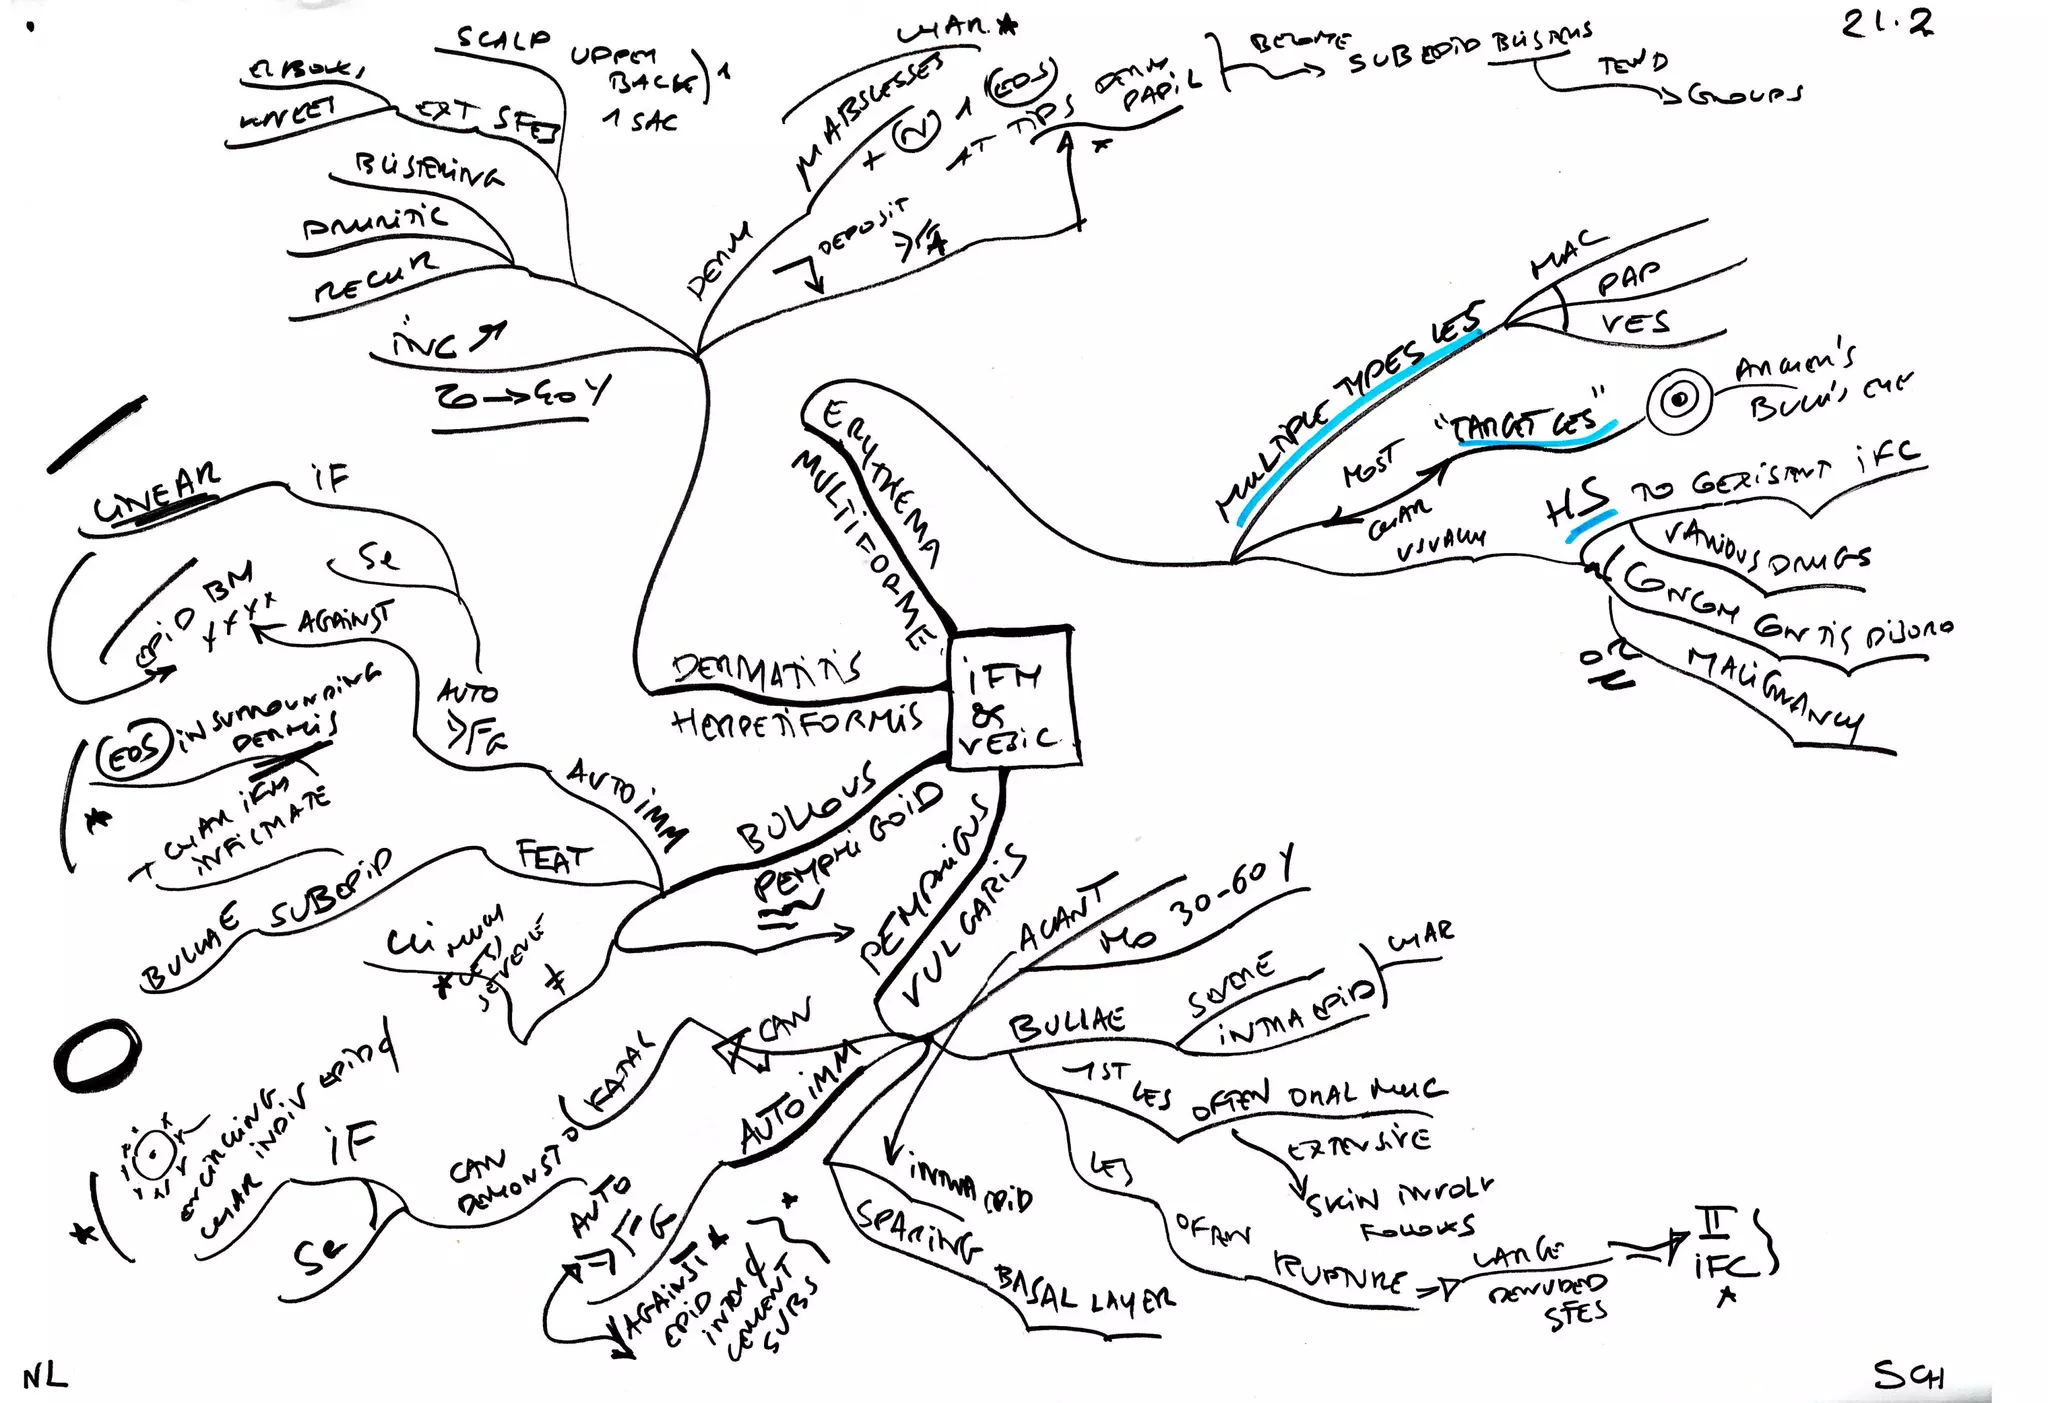 21.2
SCALP
UPPER
BACK
1 SAC
ELBOWS
EXT SFES
BLISTERING
PRURITIC
RECUR
INC
20 → 40 Y
CHAR ★
M ABSCESSES
+ N 1 EOS
AT TIPS DERM
PAPIL
*
BECOME
SUBEPID BLISTERS
TEND
GROUPS
DERM
DEPOSIT
MULTIPLE TYPES LES
MAC
PAP
VES
MOST "TARGET LES"
CHAR
BULL'S EYE
USUALLY
HS TO COEXISTENT IFC
VARIOUS DRUGS
CONCOM CONTIS DISORD
OR
MALIGNANCY
ERYTHEMA
MULTIFORME
iFM
&
VESIC
DERMATITIS
HERPETIFORMIS
BULLOUS
PEMPHIGOID
PEMPHIGUS
VULGARIS
LINEAR
IF
Se
EPID BM
AGAINST
AUTO
AUTOIMM
EOS IN SURROUNDING
DERMIS
*
+ CHAR IFM
INFILTRATE
FEAT
SUBEPID
BULLAE
* LES/
SEVERE
≠
ACANT
MO 30-60 Y
BULLAE
SEVERE
INTRA EPID
CHAR
1ST
LES
OFTEN ORAL MUC
EXTENSIVE
SKIN INVOLV
FOLLOWS
LES
OFTEN
RUPTURE
LARGE
DENUDED
SFES
II
IFC
*
INTRA EPID
SPARING
BASAL LAYER
CAN
FATAL
AUTOIMM
AUTO
AGAINST *
EPID
INTER
CEMENT
SUBS
CAN
DEMONST
IF
Se
CHAR
ENCIRCLING
INDIV EPID
*
NL
SCH